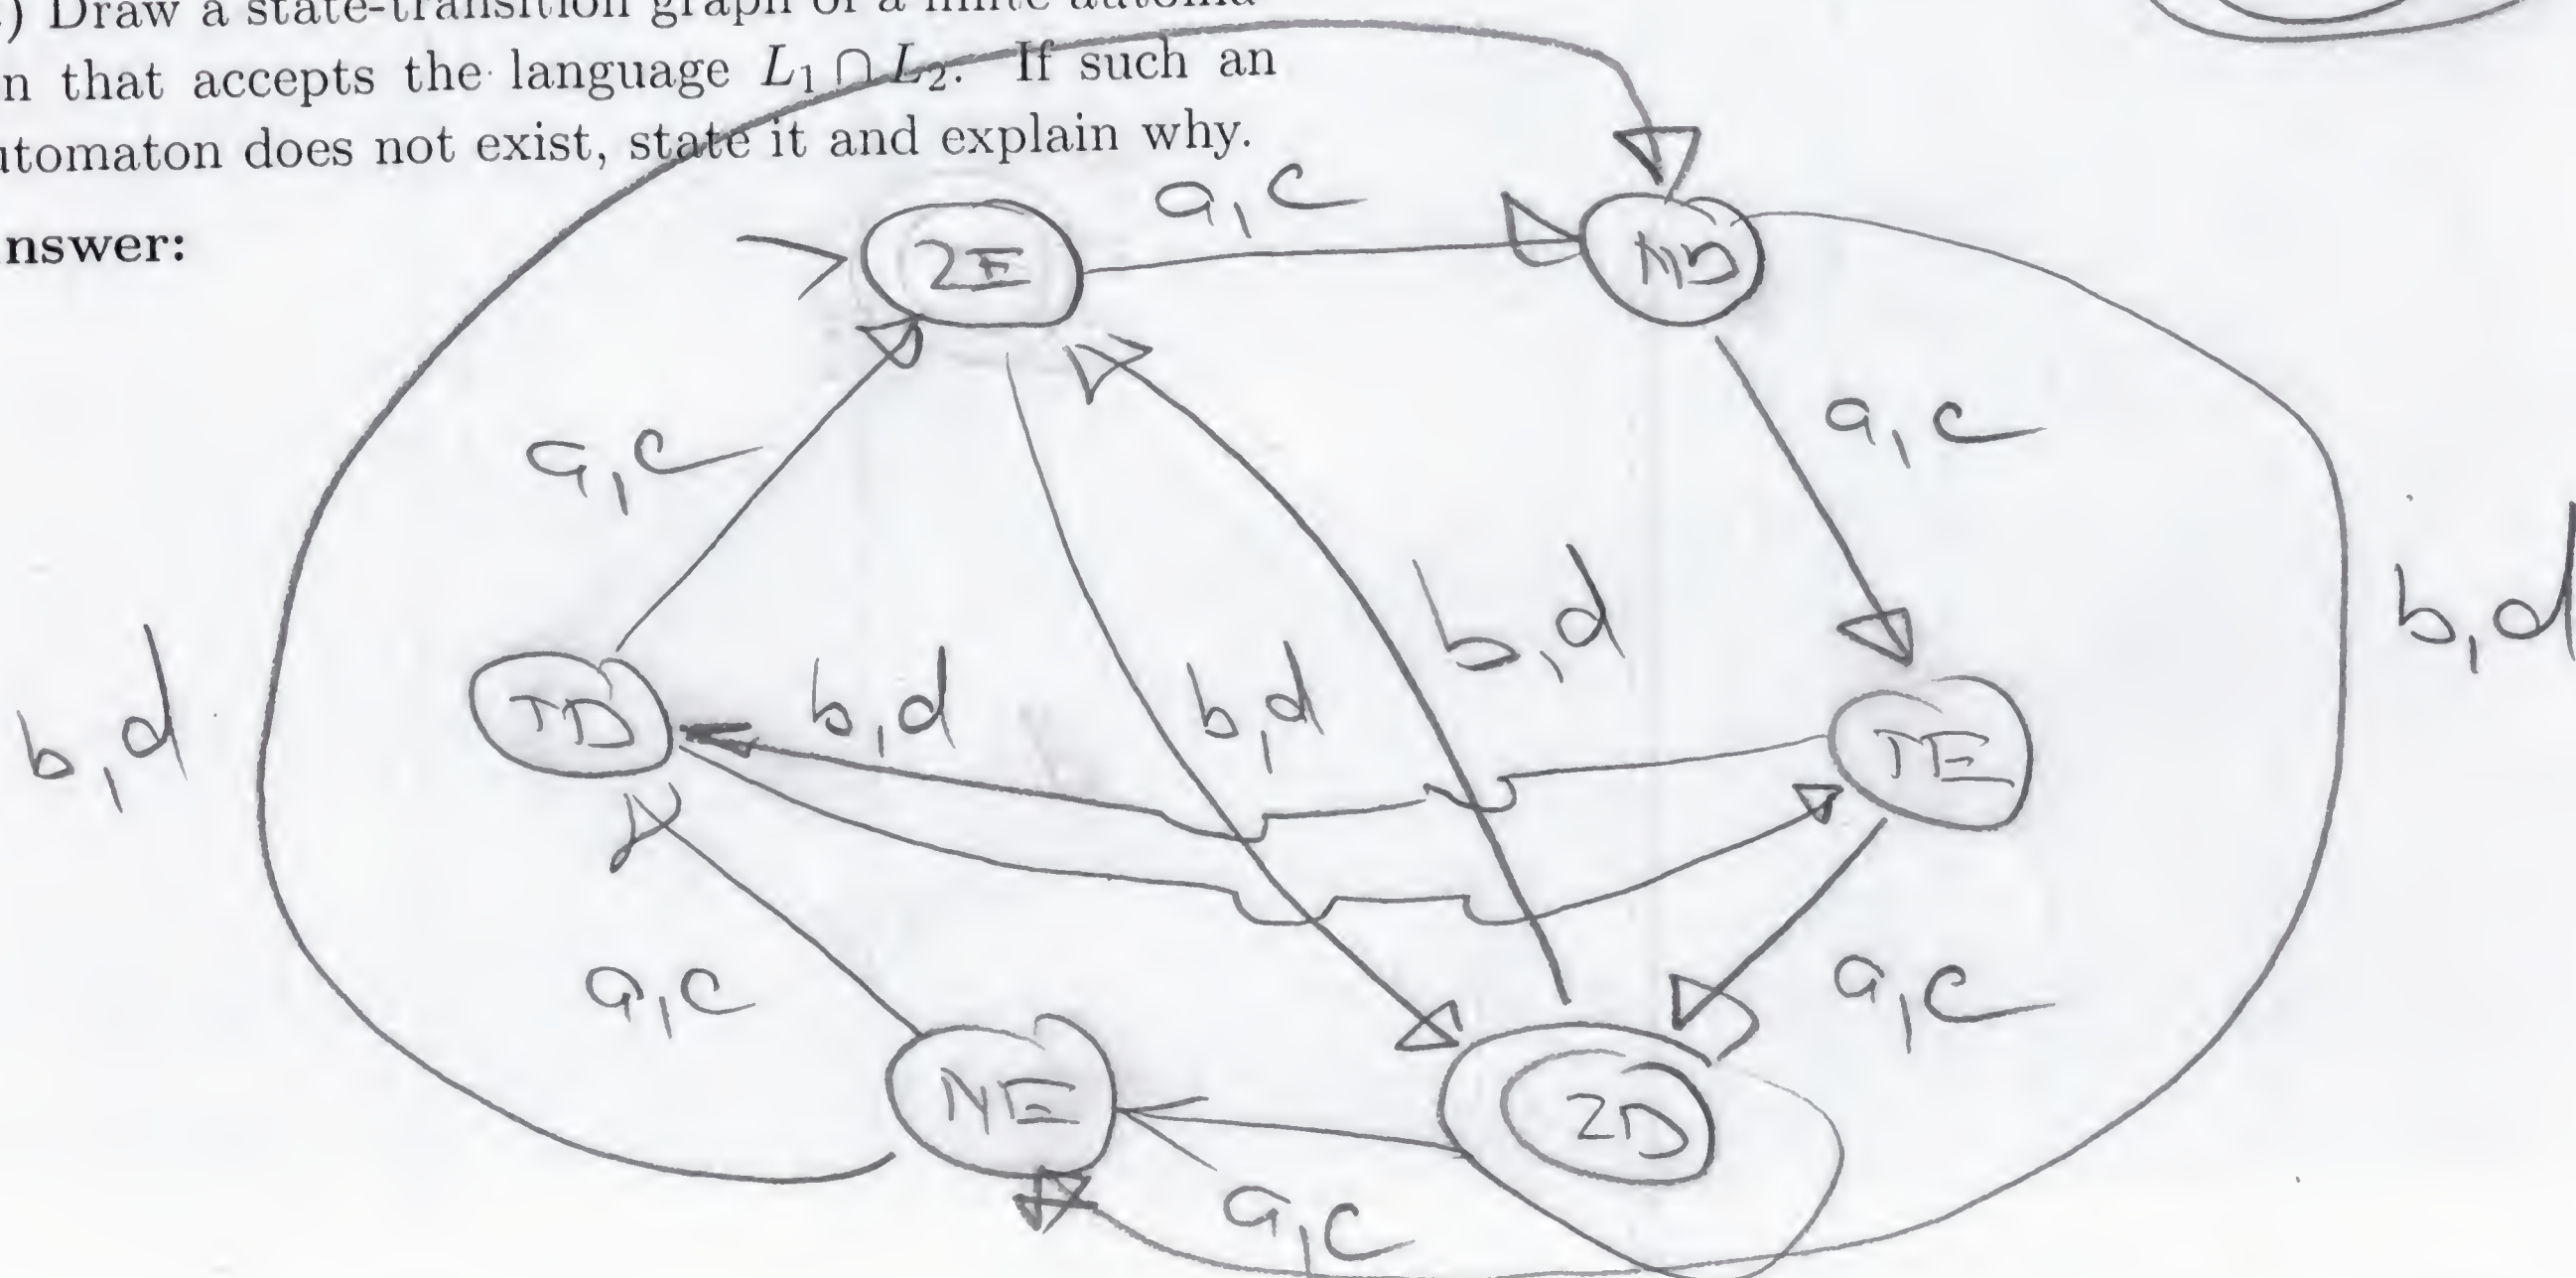 ) Draw a state-transition graph of a finite automa-
n that accepts the language L₁ ∩ L₂. If such an
utomaton does not exist, state it and explain why.
nswer:
a,c
ZE
ND
a,c
a,c
b,d
b,d
b,d
b,d
b,d
b,d
TD
TE
a,c
a,c
NE
ZD
a,c